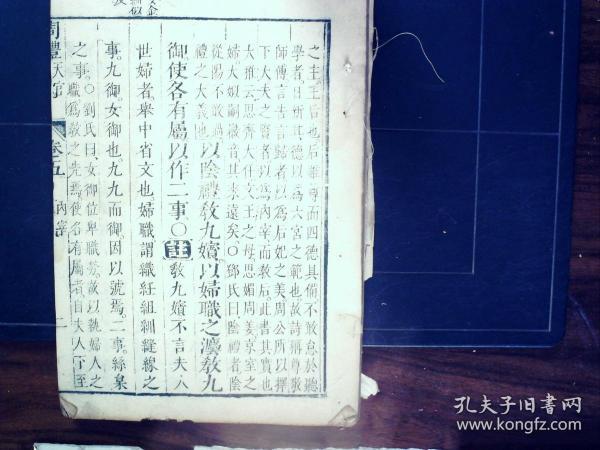 之主王后也后雖尊而四德具備不敢怠於聽
學者日新其德以為六宮之範也故詩稱尊敬
師傅言告言歸者以為后妃之美周公所以擇
下大夫之賢者以為內宰而教后此書其實也
大雅云思齊大任文王之母思媚周姜京室之
婦大姒嗣徽音其來遠矣○鄭氏曰陰禮者陰
從陽不敢過
禮之大義也以陰禮教九嬪以婦職之灋教九
御使各有屬以作二事○註教九嬪不言夫人
世婦者舉中省文也婦職謂織紝組紃縫線之
事九御女御也九九而御因以號焉二事絲枲
之事○劉氏曰女御位卑職
職為教之先焉使各有屬者自夫人下至
周禮天官 卷五 內宰 二
孔夫子旧書网
www.kongfz.com